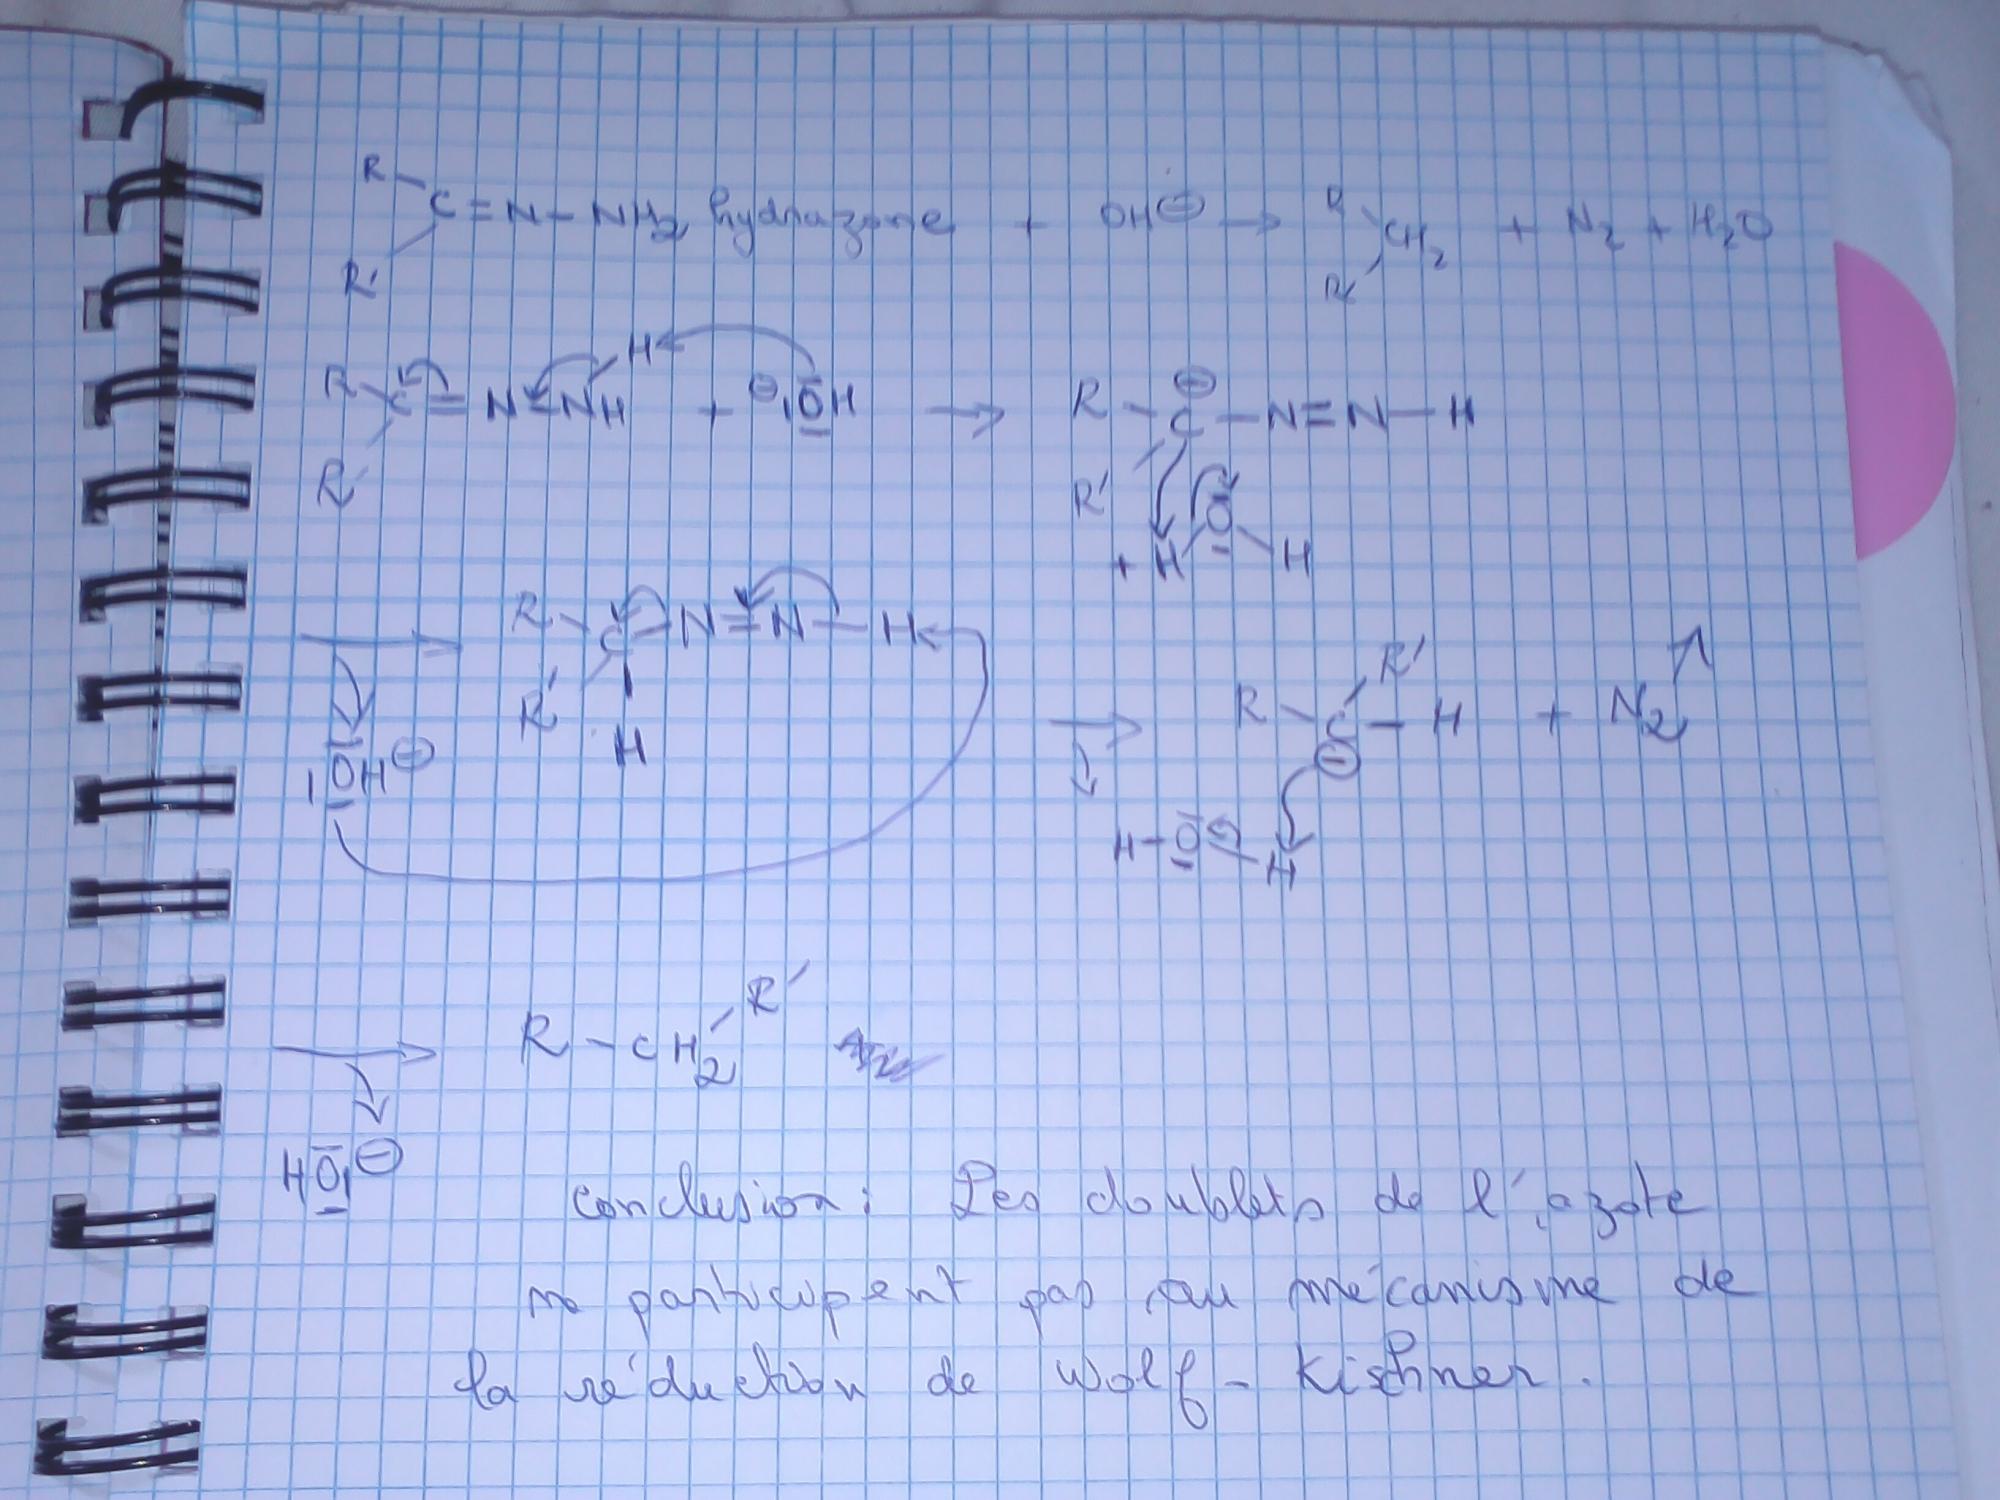 R
C = N - NH2 hydrazone + OH⊖ → R CH2 + N2 + H2O
R' R'
R C = N - NH + ⊖ |OH → R - C - N = N - H
H ⊖
R' R'
+ H O H
→ R C - N = N - H
R' H
|OH⊖
→ R - C - H + N2
R' ⊖
H - O - H
→ R - CH2 R'
HO| ⊖
conclusion : Les doublets de l'azote
ne participent pas au mécanisme de
la réduction de Wolf - Kischner .